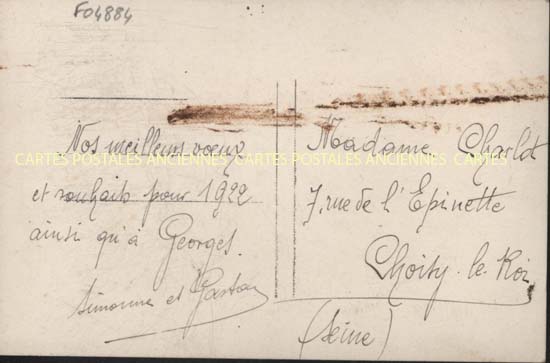 F04884
Nos meilleurs vœux
et souhaits pour 1922
ainsi qu'à Georges.
Simonne et Gaston
Madame Charlot
7, rue de l'Epinette
Choisy-le-Roi
(Seine)
CARTES POSTALES ANCIENNES CARTES POSTALES ANCIENNES CARTES POSTALES ANCIENNES